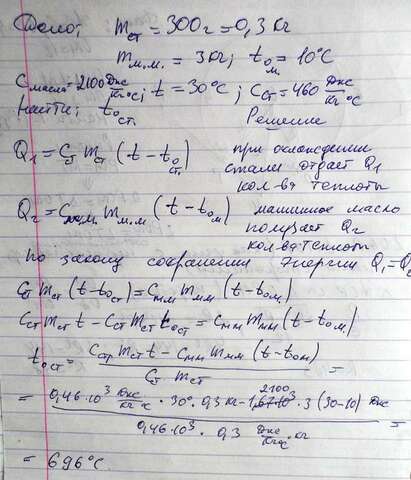 Дано: mст = 300г = 0,3 кг
mм.м. = 3кг; t0м. = 10°C
Cмасла = 2100 Дж/кг°C; t = 30°C; Cст = 460 Дж/кг°C
Найти: t0ст. Решение
Q1 = Cст mст (t - t0ст.) при охлаждении стали отдает Q1 кол-ва теплоты
Q2 = Cм.м. mм.м (t - t0м) машинное масло получает Q2 кол-ва теплоты
По закону сохранения Энергии Q1 = Q2
Cст mст (t - t0ст) = Cмм mмм (t - t0м)
Cст mст t - Cст mст t0ст = Cмм mмм (t - t0м)
t0ст = (Cст mст t - Cмм mмм (t - t0м)) / (Cст mст) =
= (0,46·10³ Дж/кг°C · 30° · 0,3 кг - 2100 · 3 (30-10) Дж) / (0,46·10³ · 0,3 Дж/кг°C · кг) =
= 696°C